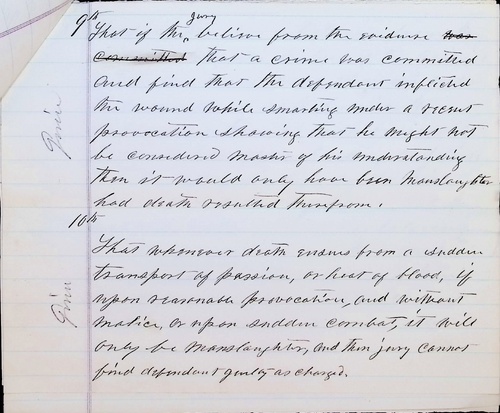 9th
That if the jury believe from the evidence was
committed that a crime was committed
and find that the defendant inflicted
the wound while smarting under a recent
provocation showing that he might not
be considered master of his understanding
then it would only have been manslaughter
had death resulted therefrom.
Given
10th
That whenever death ensues from a sudden
transport of passion, or heat of blood, if
upon reasonable provocation, and without
malice, or upon sudden combat, it will
only be manslaughter, and then jury cannot
find defendant guilty as charged.
Given